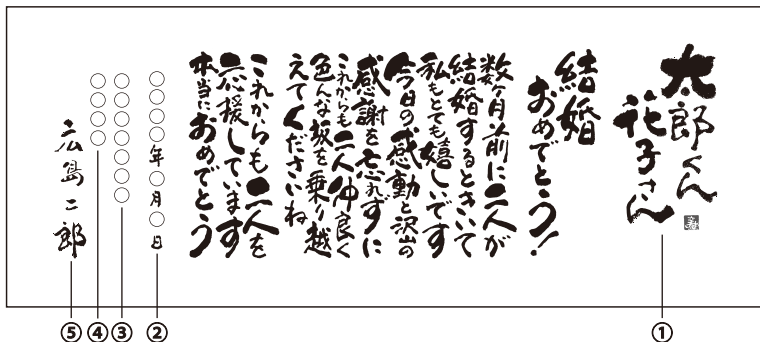 太郎くん
花子さん
結婚
おめでとう！
数ヶ月前に二人が
結婚するときいて
私もとても嬉しいです
今日の感動と沢山の
感謝を忘れずに
これからも二人仲良く
色んな坂を乗り越
えてくださいね
これからも二人を
応援しています
本当におめでとう
○○○○年○月○日
○○○○○○○
○○○○
広島二郎
⑤ ④ ③ ② ①